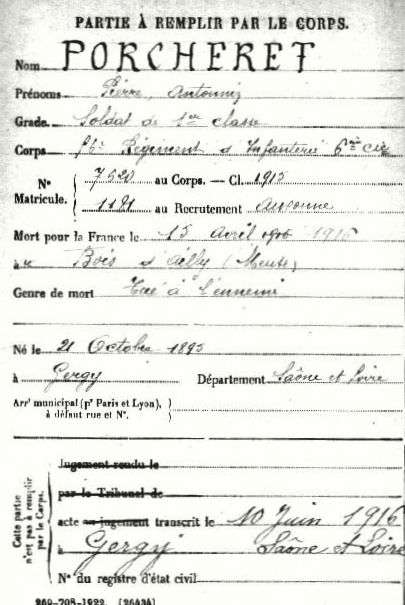 PARTIE À REMPLIR PAR LE CORPS.
Nom PORCHERET
Prénoms Pierre, Antonin
Grade Soldat de 1re classe
Corps Régiment d'Infanterie 6me Cie
Nº 7620 au Corps. — Cl. 1913
Matricule. 1181 au Recrutement Auxonne
Mort pour la France le 15 Avril 1916
au Bois d'Ailly (Meuse)
Genre de mort Tué à l'ennemi
Né le 21 Octobre 1893
à Gergy Département Saône et Loire
Arrt municipal (pr Paris et Lyon),
à défaut rue et Nº.
Cette partie n'est pas à remplir par le Corps.
Jugement rendu le
par le Tribunal de
acte ou jugement transcrit le 10 Juin 1916
à Gergy Saône et Loire
Nº du registre d'état civil
269-708-1922. [26434]